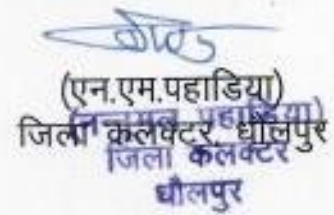 (एन.एम.पहाडिया)
जिला कलेक्टर, धौलपुर
पहाड़िया)
जिला कलेक्टर
धौलपुर